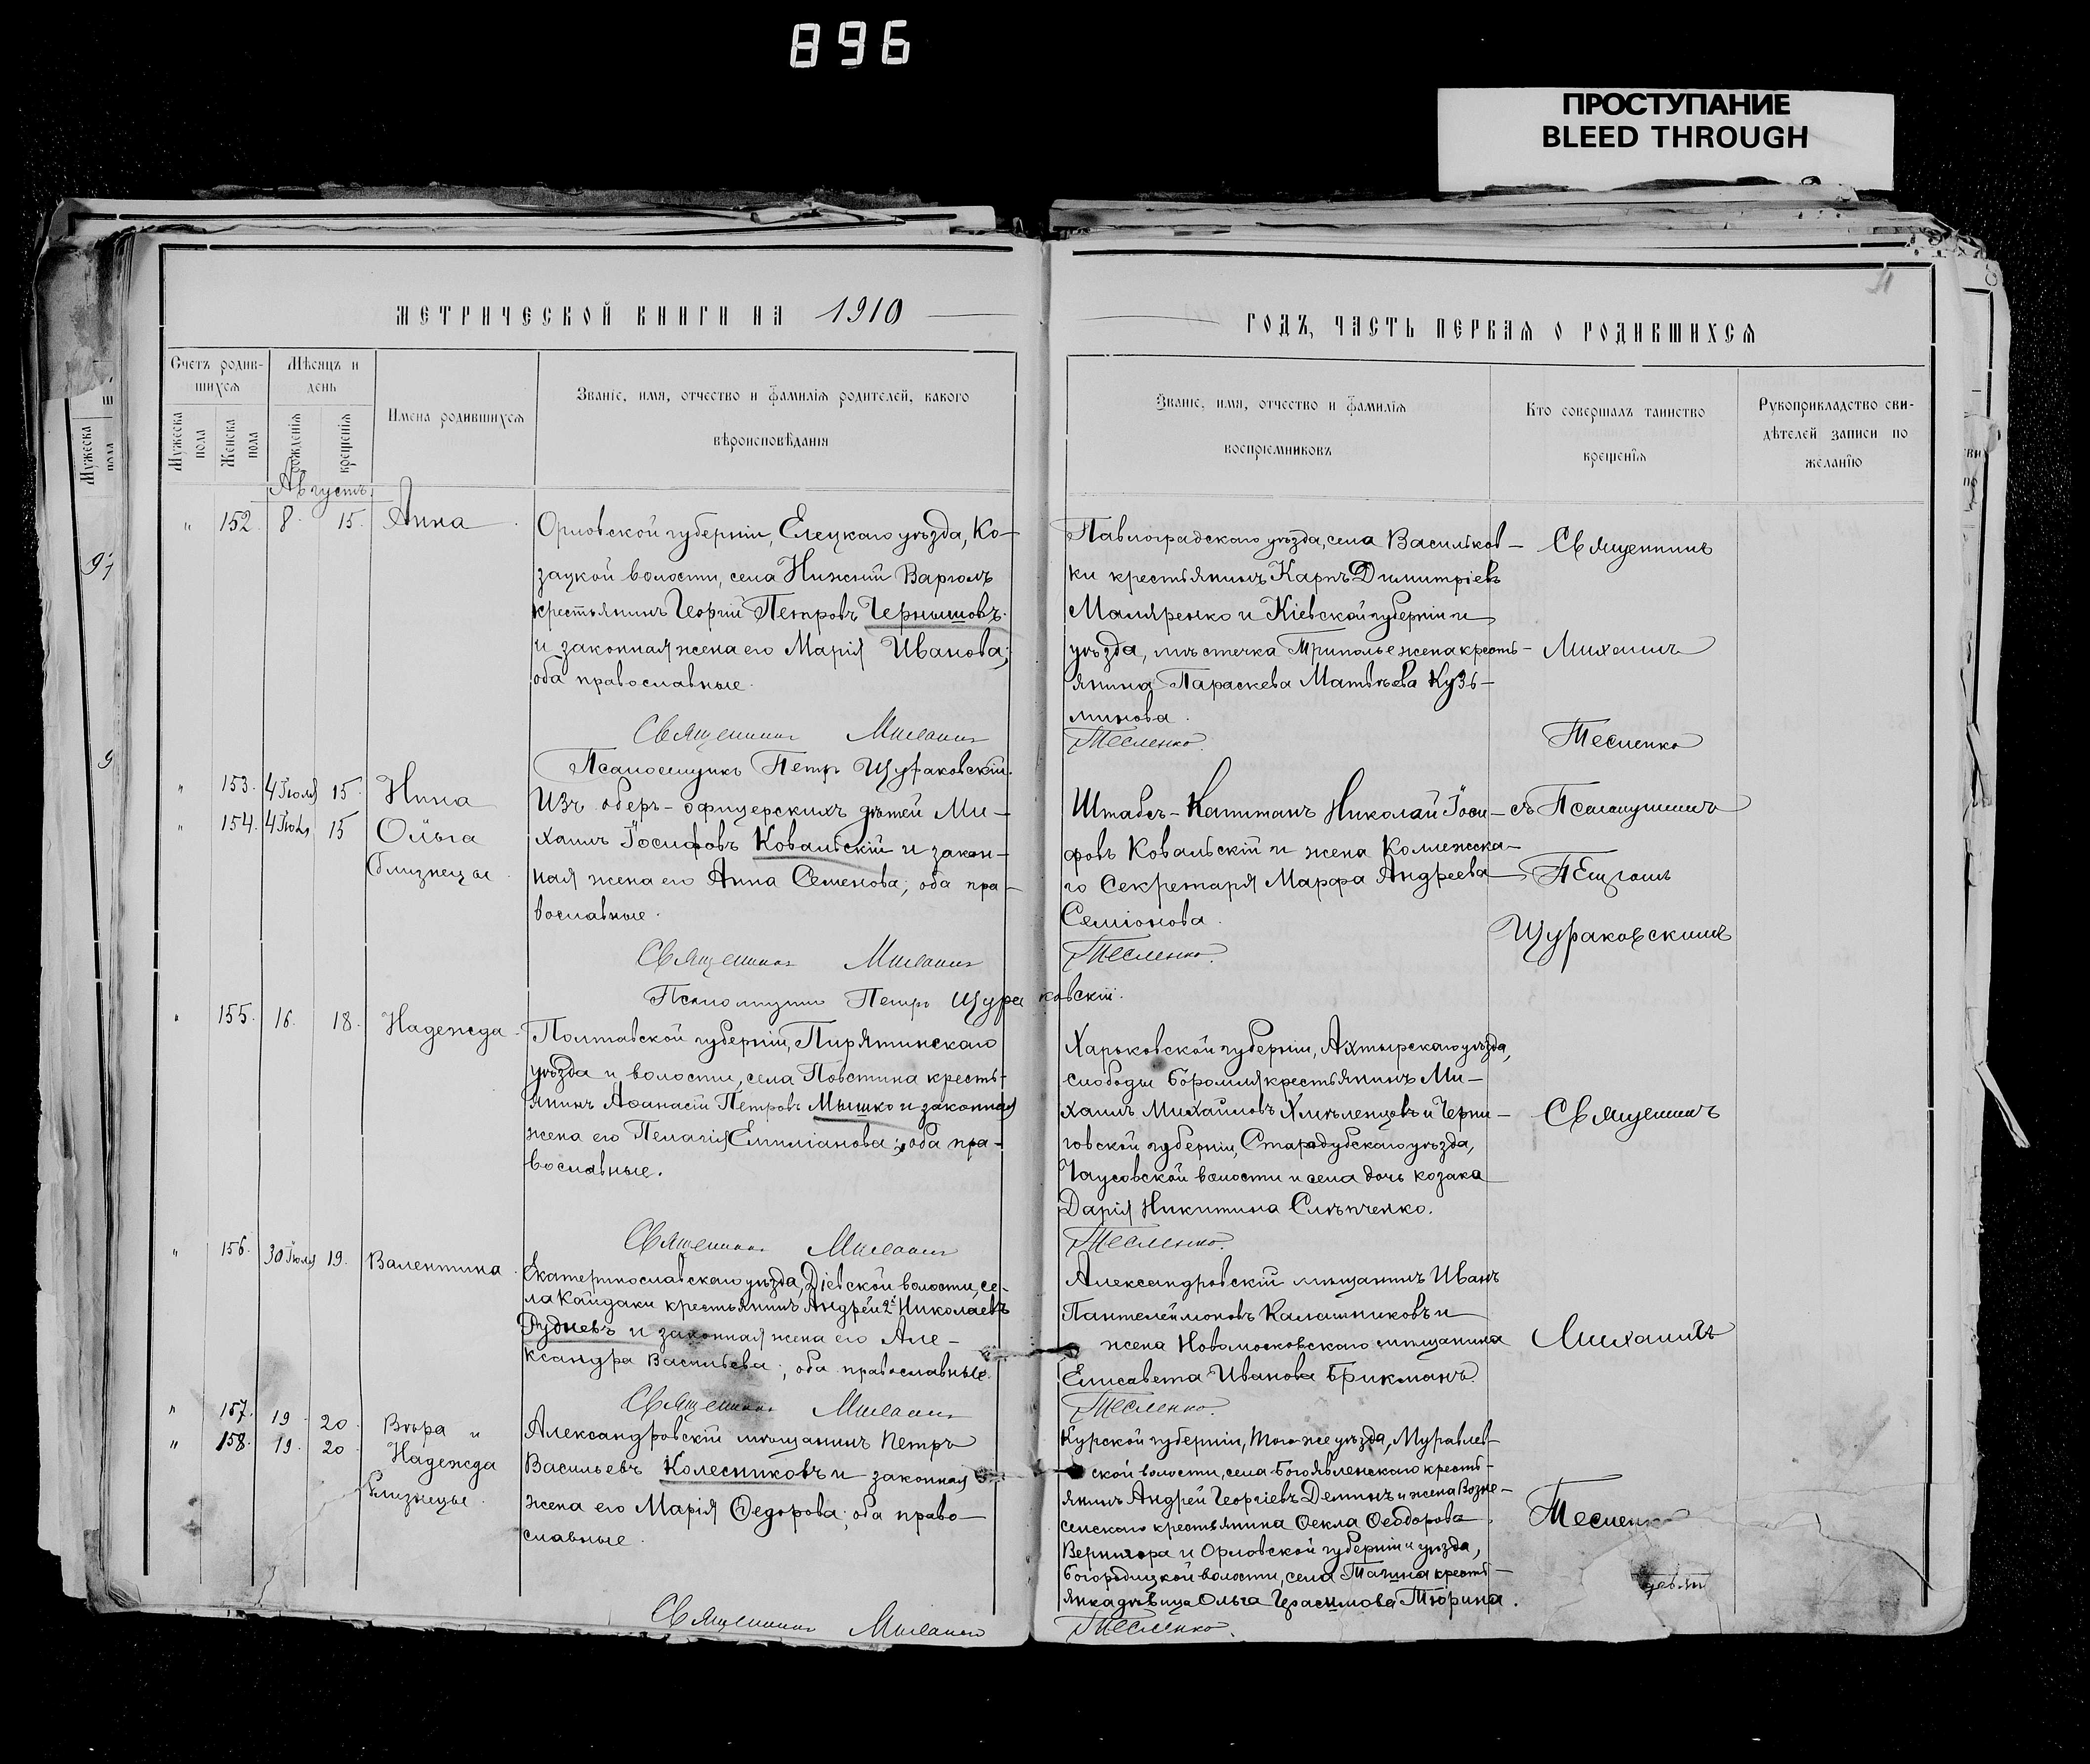 896
ПРОСТУПАНИЕ
BLEED THROUGH
МЕТРИЧЕСКОЙ КНИГИ НА 1910
Счетъ родив-
шихся
Мѣсяцъ и
день
Мужеска
пола
Женска
пола
рожденія
крещенія
Имена родившихся
Званіе, имя, отчество и фамилія родителей, какого
вѣроисповѣданія
Августъ
" 152. 8. 15. Анна
Орловской губерніи, Елецкаго уѣзда, Ко-
зацкой волости, села Нижній Варголъ
крестьянинъ Георгій Петровъ Чернышовъ
и законная жена его Марія Иванова;
оба православные.
Священникъ Михаилъ
Псаломщикъ Петръ Щураковскій.
" 153. 4 Іюля 15. Нина
" 154. 4 Іюля 15 Ольга
близнецы.
Изъ оберъ-офицерскихъ дѣтей Ми-
хаилъ Іосифовъ Ковальскій и закон-
ная жена его Анна Семенова; оба пра-
вославные.
Священникъ Михаилъ
Псаломщикъ Петръ Щураковскій.
" 155. 16. 18. Надежда
Полтавской губерніи, Пирятинскаго
уѣзда и волости, села Повстина кресть-
янинъ Аѳанасій Петровъ Мышко и законная
жена его Пелагія Емиліанова; оба пра-
вославные.
Священникъ Михаилъ
" 156. 30 Іюля 19. Валентина
Екатеринославскаго уѣзда, Діевской волости, се-
ла Кайдаки крестьянинъ Андрей 2й Николаевъ
Рудневъ и законная жена его Але-
ксандра Васильева; оба православные.
Священникъ Михаилъ
" 157. 19 20 Вѣра и
" 158. 19. 20. Надежда
близнецы.
Александровскій мѣщанинъ Петръ
Васильевъ Колесниковъ и законная
жена его Марія Ѳедорова; оба право-
славные.
Священникъ Михаилъ
ГОДЪ, ЧАСТЬ ПЕРВАЯ О РОДИВШИХСЯ
Званіе, имя, отчество и фамилія
воспріемниковъ
Кто совершалъ таинство
крещенія
Рукоприкладство сви-
дѣтелей записи по
желанію
Павлоградскаго уѣзда, села Васильков-
ки крестьянинъ Карпъ Димитріевъ
Маляренко и Кіевской губерніи и
уѣзда, мѣстечка Триполье жена кресть-
янина Параскева Матвѣева Кузь-
минова.
Тесленко.
Священникъ
Михаилъ
Тесленко
Штабсъ-Капитанъ Николай Іоси-
фовъ Ковальскій и жена Коллежска-
го Секретаря Марфа Андреева
Семіонова.
Тесленко.
съ Псаломщикомъ
Петромъ
Щураковскимъ
Харьковской губерніи, Ахтырскаго уѣзда,
слободы Боромля крестьянинъ Ми-
хаилъ Михайловъ Хмѣленцовъ и Черни-
говской губерніи, Стародубскаго уѣзда,
Чаусовской волости и села дочь козака
Дарія Никитина Слѣпченко.
Тесленко.
Священникъ
Александровскій мѣщанинъ Иванъ
Пантелеймоновъ Калашниковъ и
жена Новомосковскаго мѣщанина
Елисавета Иванова Брикманъ.
Тесленко.
Михаилъ
Курской губерніи, того же уѣзда, Муравлев-
ской волости, села Богоявленскаго кресть-
янинъ Андрей Георгіевъ Деминъ и жена Возне-
сенскаго крестьянина Ѳекла Ѳеодорова
Вернигора и Орловской губерніи и уѣзда,
Богородицкой волости, села Тагина кресть-
янка дѣвица Ольга Герасимова Тюрина.
Тесленко.
Тесленко